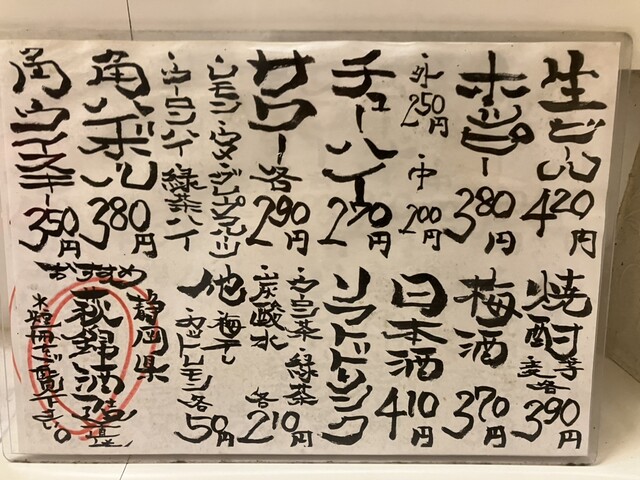 生ビール 420円
ホッピー 380円
・外 250円
・中 200円
チューハイ 270円
サワー 各290円
・レモン・ウメ・グレープフルーツ
・ウーロンハイ・緑茶ハイ
角ハイボール 380円
角ウイスキー 350円
焼酎 芋 麦 各390円
梅酒 370円
日本酒 410円
ソフトドリンク
・ウーロン茶・緑茶
・炭酸水 各210円
他 ・梅干し
・カットレモン 各50円
静岡県
おすすめ 萩錦酒造